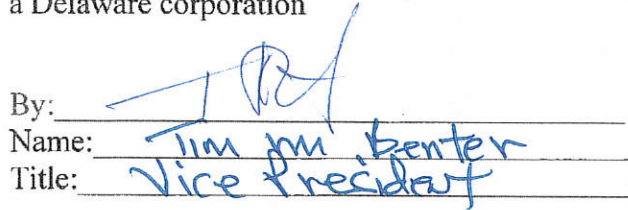 a Delaware corporation
By:
Name: Tim M Benter
Title: Vice President